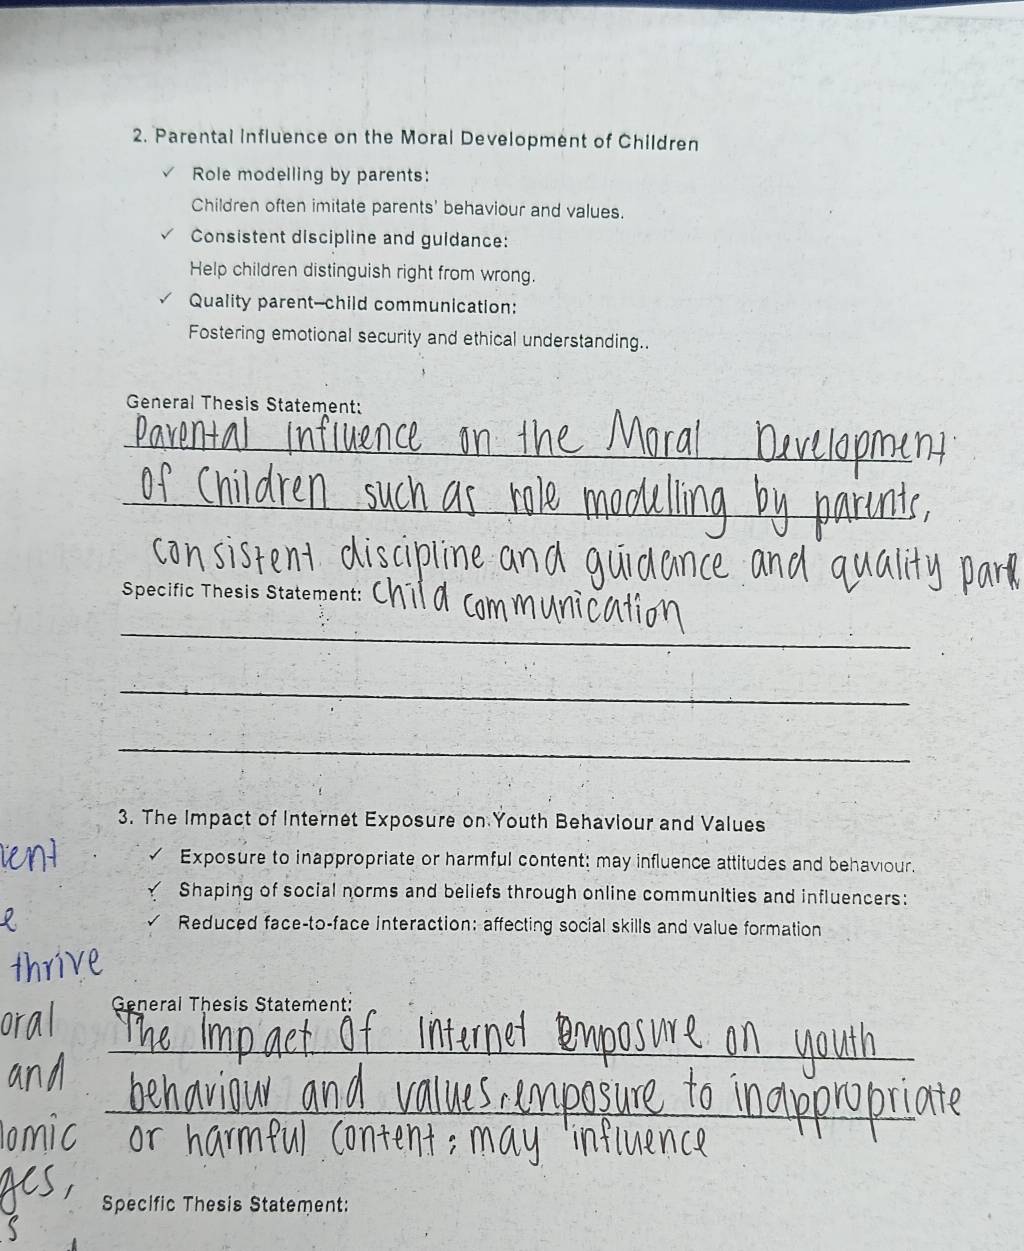 2. Parental Influence on the Moral Development of Children
✓ Role modelling by parents:
Children often imitate parents' behaviour and values.
✓ Consistent discipline and guidance:
Help children distinguish right from wrong.
✓ Quality parent–child communication:
Fostering emotional security and ethical understanding..
General Thesis Statement:
Parental influence on the Moral Development
of Children such as role modelling by parents,
consistent discipline and guidance and quality
Specific Thesis Statement: child communication
3. The Impact of Internet Exposure on Youth Behaviour and Values
✓ Exposure to inappropriate or harmful content: may influence attitudes and behaviour.
✓ Shaping of social norms and beliefs through online communities and influencers:
✓ Reduced face-to-face interaction: affecting social skills and value formation
thrive
General Thesis Statement:
oral The impact of internet emposure on youth
and behaviour and values, emposure to inappropriate
or harmful content; may influence
Specific Thesis Statement: